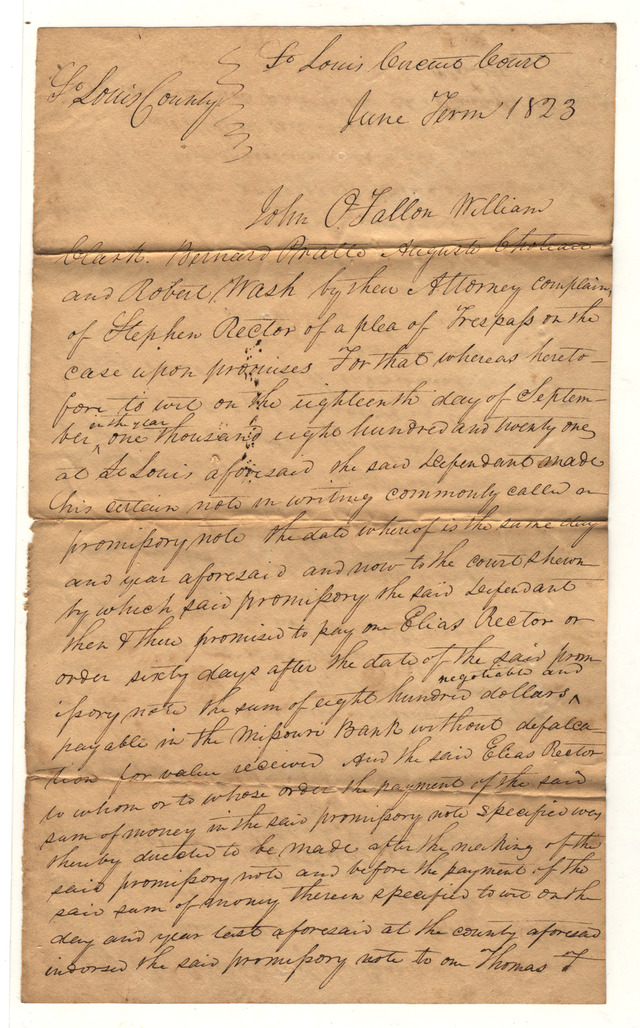 St Louis Circuit Court
St Louis County
June Term 1823
John O'Fallon William
Clark. Bernard Pratte Auguste Choteau
and Robert Wash by their Attorney complain
of Stephen Rector of a plea of Trespass on the
case upon promises For that whereas hereto-
fore to wit on the eighteenth day of Septem-
in the year
ber ^ one thousand eight hundred and twenty one
at St Louis aforesaid the said Defendant made
his certain note in writing commonly called a
promissory note the date whereof is the same day
and year aforesaid and now to the court shewn
by which said promissory the said Defendant
then & there promised to pay one Elias Rector or
order sixty days after the date of the said prom
negotiable and
issory note the sum of eight hundred dollars ^
payable in the Missouri Bank without defalca-
tion for value received And the said Elias Rector
to whom or to whose order the payment of the said
sum of money in the said promissory note specified was
thereby directed to be made after the making of the
said promissory note and before the payment of the
said sum of money therein specified to wit on the
day and year last aforesaid at the county aforesaid
indorsed the said promissory note to one Thomas T